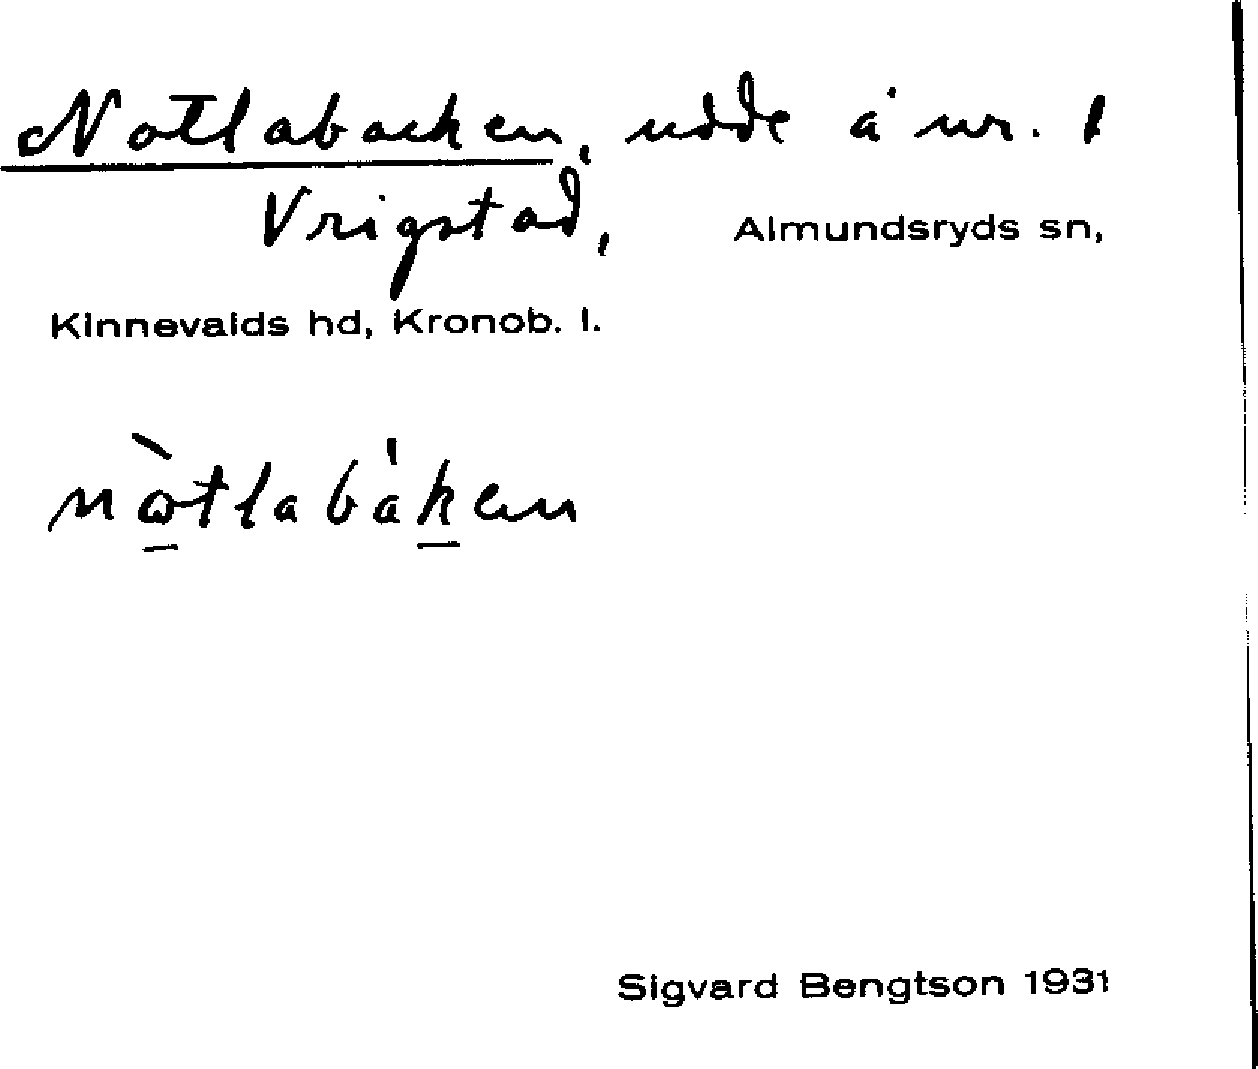 Notlabacken, udde å nr. 1
Vrigstad, Almundsryds sn,
Kinnevalds hd, Kronob. l.
nòtlabàken
Sigvard Bengtson 1931